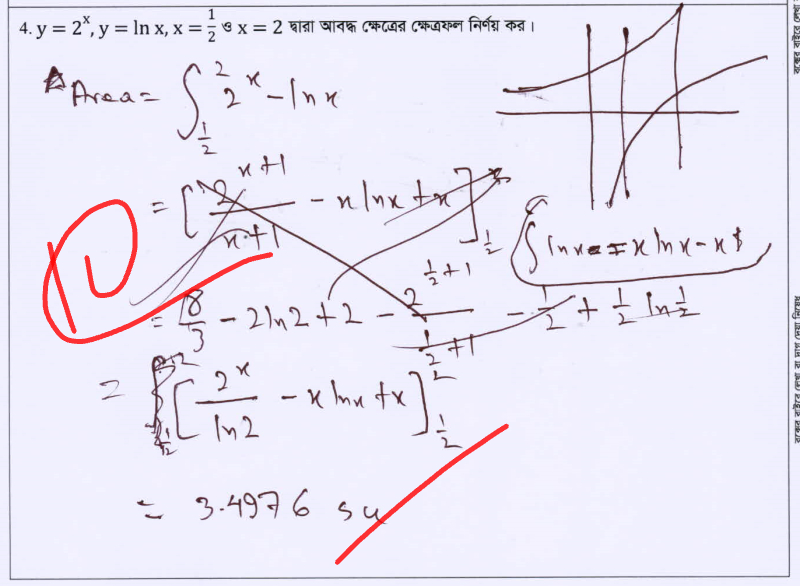 4. y = 2^x, y = ln x, x = 1/2 ও x = 2 দ্বারা আবদ্ধ ক্ষেত্রের ক্ষেত্রফল নির্ণয় কর।
Area = ∫_{1/2}^{2} 2^x - ln x
= [2^{x+1}/(x+1) - x ln x + x]_{1/2}
∫ ln x = x ln x - x
= 8/3 - 2 ln 2 + 2 - 2^{1/2+1}/(1/2+1) - 1/2 + 1/2 ln 1/2
= [2^x/ln 2 - x ln x + x]_{1/2}^{2}
= 3.4976 su
10